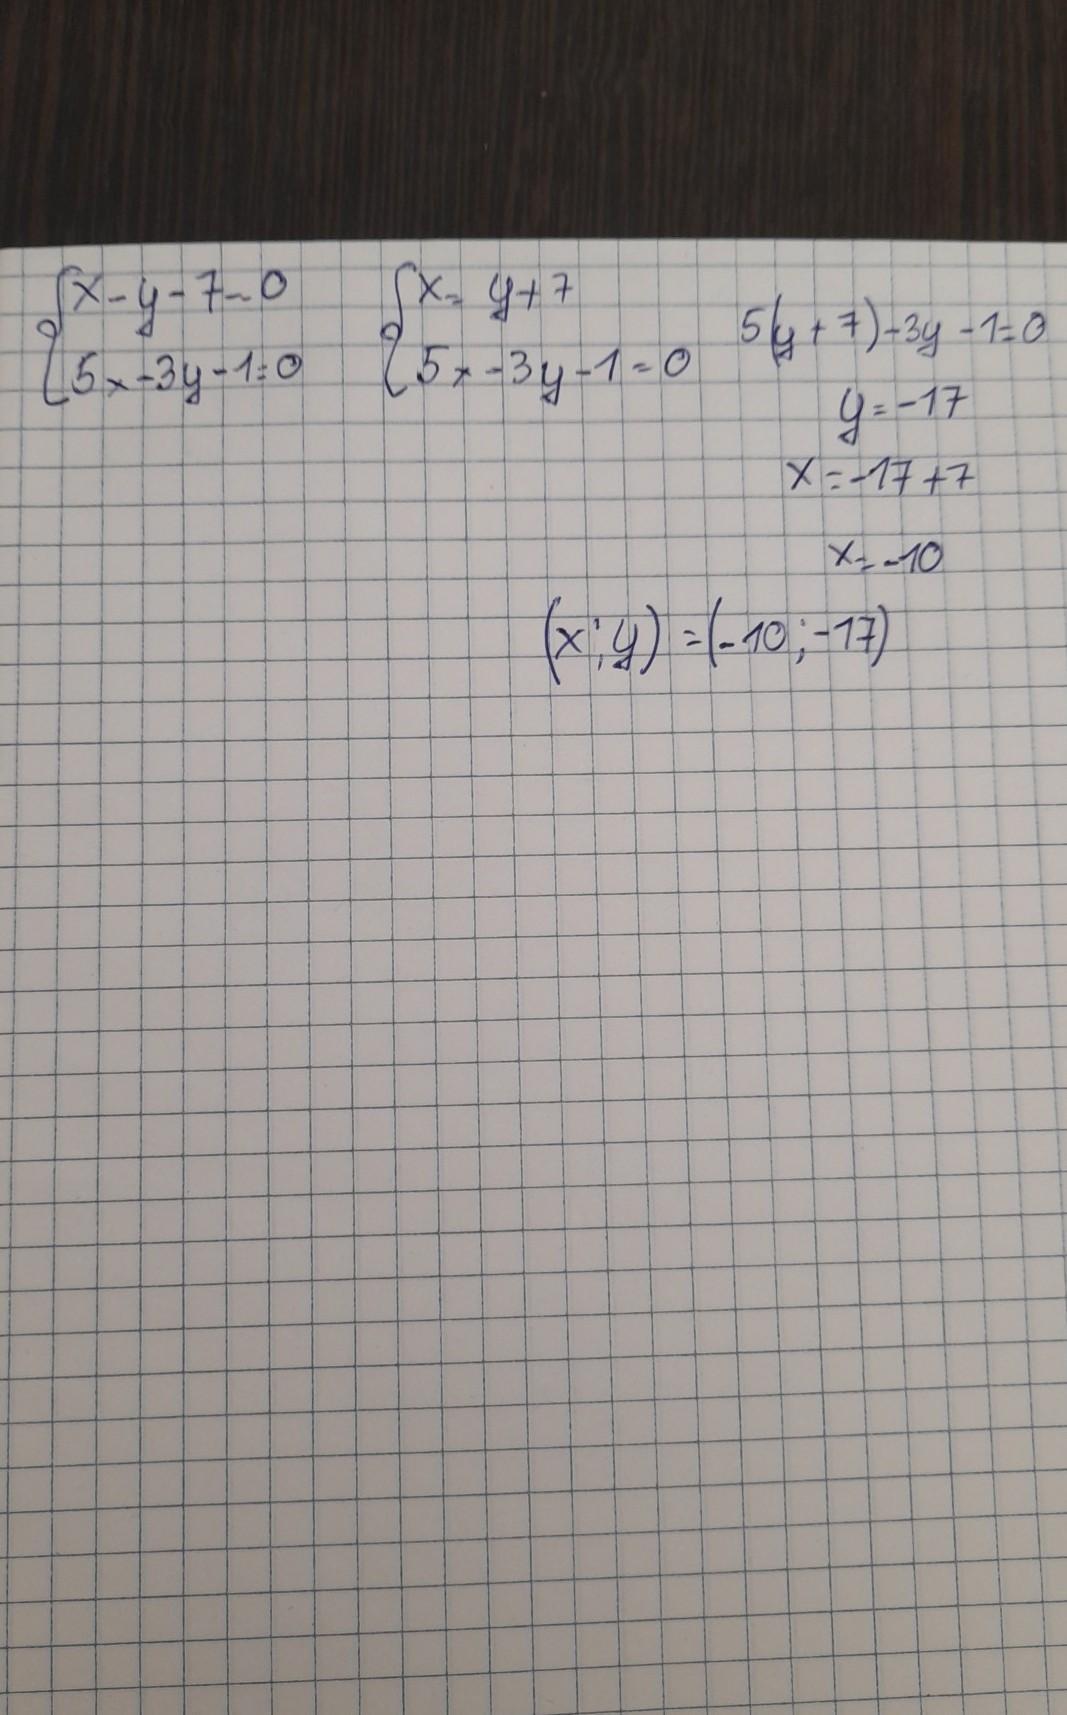 x-y-7=0
5x-3y-1=0
x= y+7
5x-3y-1=0
5(y+7)-3y-1=0
y=-17
x=-17+7
x=-10
(x;y)=(-10;-17)